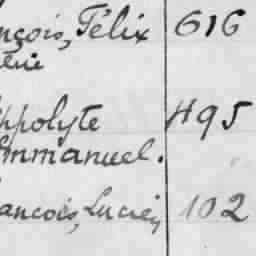 nçois, Félix 616
érie
ppolyte 495
Emmanuel.
ancois, Lucien 102